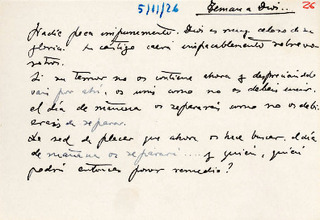 5/11/26 Teman a Dios.. 26
Nadie peca impunemente. Dios es muy celoso de su
gloria. Su castigo caerá implacablemente sobre vo-
sotros.
Si su temor no os contiene ahora y despreciándolo
vais por ahí, os unís como no os debéis unir.
el día de mañana os separaréis como no os debi-
erais de separar.
La sed de placer que ahora os hace buscar, el día
de mañana os separará.... y quién, quién
podrá entonces poner remedio?